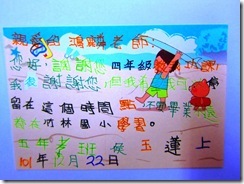 親愛的鴻麟老師：
您好，謝謝您四年級教功課
我要謝謝您，但我
留在這個時間點不要畢業
在竹林國小學習。
五年 班 侯玉蓮上
101年 月22日